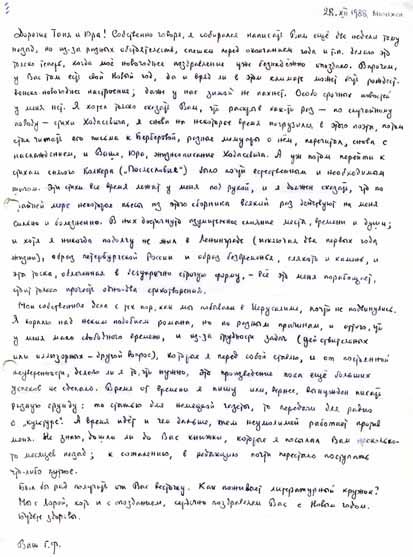 28.XII 1988, Мюнхен
Дорогие Тоня и Юра! Собственно говоря, я собирался написать Вам ещё две недели тому
назад, но из-за разных обстоятельств, спешки перед окончанием года и т.п. делаю это
только теперь, когда моё новогоднее поздравление уже безнадёжно опоздало. Впрочем,
у Вас там есть свой Новый год, да и вряд ли в этом климате может быть рождест-
венско-новогоднее настроение; даже у нас зимой не пахнет. Особо срочных новостей
у меня нет. Я хотел только сказать Вам, что раскрыв как-то раз — по случайному
поводу — стихи Ходасевича, я снова на некоторое время погрузился в этого поэта, потом
стал читать его письма к Берберовой, разные мемуары о нём, перечитал, снова с
наслаждением, и Ваше, Юра, жизнеописание Ходасевича. А уж потом перейти к
стихам самого Колкера ("Послесловие") было почти естественным и необходимым
шагом. Эти стихи всё время лежат у меня под рукой, и я должен сказать, что по
крайней мере некоторые пьесы из этого сборника всякий раз действуют на меня
сильно и болезненно. В них достигнуто изумительное слияние места, времени и души;
и хотя я никогда подолгу не жил в Ленинграде (исключая два первых года
жизни), образ петербургской России и образ безвременья, слякоть и камень, и
эта тоска, облечённая в безупречно строгую форму, — всё это меня порабощает,
стоит только прочесть одно-два стихотворения.
Мои собственные дела с тех пор, как мы побывали в Иерусалиме, почти не подвинулись.
Я корплю над неким подобием романа, но по разным причинам, и оттого, что
у меня мало свободного времени, и из-за трудности задач (действительных
или иллюзорных — другой вопрос), которые я перед собой ставлю, и от постоянной
неуверенности, делаю ли я то, что нужно, это произведение пока ещё больших
успехов не сделало. Время от времени я пишу или, вернее, вынужден писать
разную ерунду: то статью для немецкой газеты, то передачи для радио
о "культуре". А время идёт и чем дальше, тем неумолимей работает против
меня. Не знаю, дошли ли до Вас книжки, которые я посылал Вам несколько
месяцев назад; к сожалению, в редакцию почти перестало поступать
что-либо путное.
Был бы рад получить от Вас весточку. Как поживает литературный кружок?
Мы с Лорой, хоть и с опозданием, сердечно поздравляем Вас с Новым годом.
Будьте здоровы.
Ваш Г.Ф.